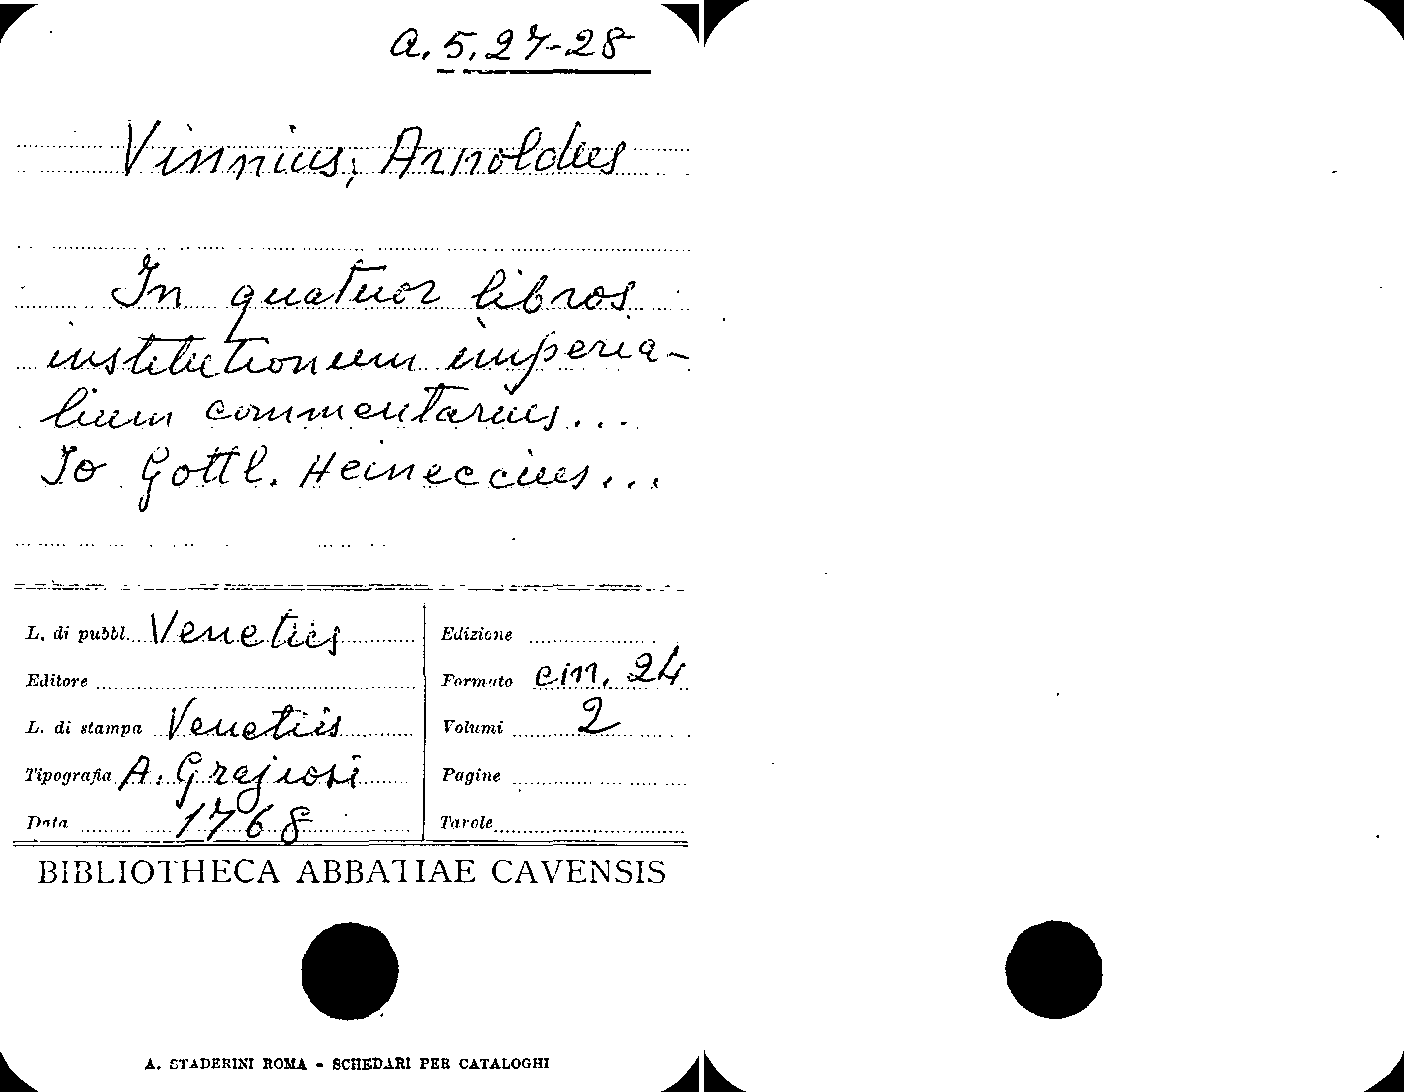 a. 5. 27-28
Vinnius, Arnoldus
In quatuor libros
institutionum imperia-
lium commentarius...
Io Gottl. Heineccius...
L. di pubbl. Venetiis
Editore
L. di stampa Venetiis
Tipografia A. Grajiosi
Data 1768
Edizione
Formato cm. 24
Volumi 2
Pagine
Tavole
BIBLIOTHECA ABBATIAE CAVENSIS
A. STADERINI ROMA - SCHEDARI PER CATALOGHI